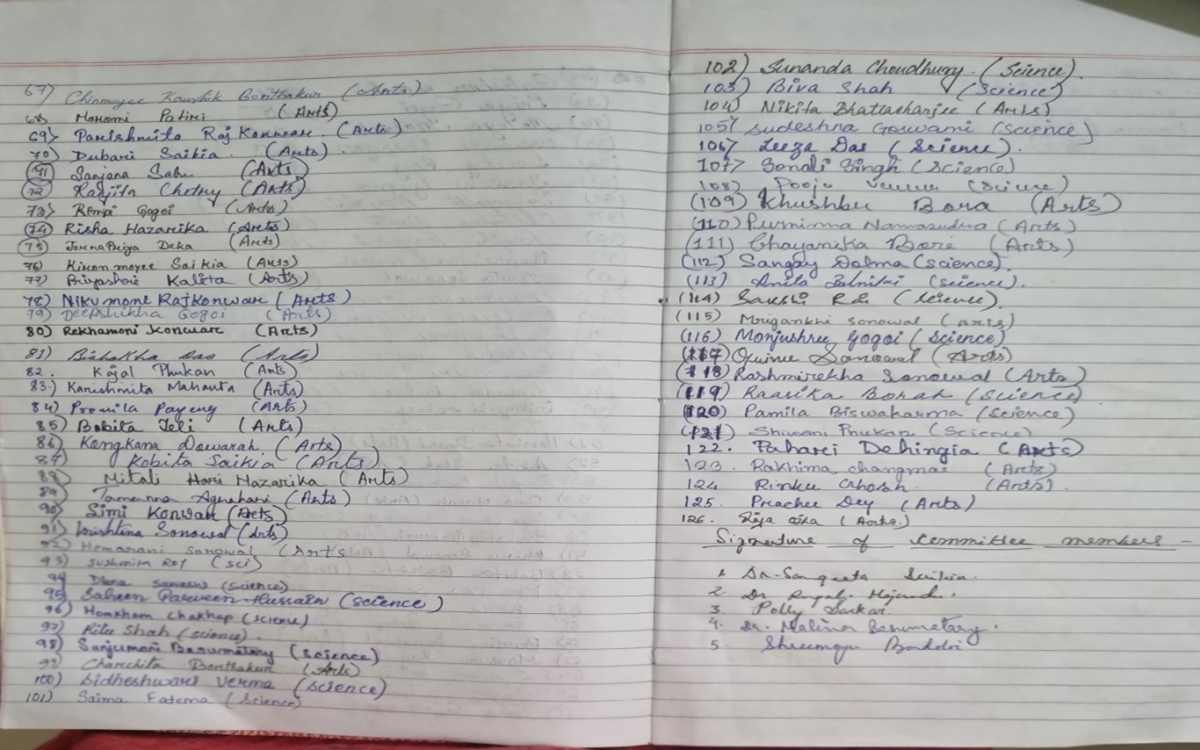 67) Chinmoyee Kaushik Borthakur (Arts)
68) Monomi Patiri (Arts)
69) Parishmita Raj Konwar. (Arts)
70) Dubari Saikia. (Arts)
71) Sanjana Sahu (Arts)
72) Ranjita Chetry (Arts)
73) Rimpi Gogoi (Arts)
74) Risha Hazarika (Arts)
75) Jornapriya Deka (Arts)
76) Kiron moyee Saikia (Arts)
77) Priyashree Kalita (Arts)
78) Nikumoni Rajkonwar (Arts)
79) Deepshikha Gogoi (Arts)
80) Rekhamoni Konwar (Arts)
81) Bishakha Das (Arts)
82. Kajal Phukan (Arts)
83) Karishmita Mahanta (Arts)
84) Promila Payeng (Arts)
85) Bobita Teli (Arts)
86) Kongkana Dowarah (Arts)
87 Kobita Saikia (Arts)
88) Mitali Hari Hazarika (Arts)
89) Tamanna Agrahari (Arts)
90) Simi Konwar (Arts)
91) Krishtina Sonowal (Arts)
92) Hemarani Sonowal (Arts
93) Sushmita Roy (Sci)
94 Diana (Science)
95) Saheen Parveen Hussain (Science)
96) Homkham Chakhap (Science)
97) Ritu Shah (Science).
98) Sanjumoni Basumatary (Science)
99) Charchita Borthakur (Arts)
100) Sidheshwari Verma (Science)
101) Saima Fatema (Science)
102) Sunanda Choudhury. (Science).
103) Biva Shah (Science)
104) Nikita Bhattacharjee (Arts)
105) Sudeshna Goswami (Science)
106) Leeza Das (Science).
107) Sonali Singh (Science)
108) Pooja Verma (Science)
(109) Khushbu Bora (Arts)
(110) Purnima Namasudra (Arts)
(111) Chayanika Bori (Arts)
(112) Sangay Dolma (Science).
(113) Anita (Science).
(114) Sakshi Rai (Science).
(115) Mrigankhi Sonowal (Arts)
(116) Monjushree Gogoi (Science)
(117) Sonowal (Arts)
(118) Rashmirekha Sonowal (Arts)
(119) Raavika Borah (Science)
(120) Pamila Biswakarma (Science)
(121) Shivani Phukan (Science)
122. Pahari Dehingia (Arts)
123. Rakhima Changmai (Arts)
124 Rinku Ghosh (Arts).
125. Preachee Dey (Arts)
126. (Arts)
Signature of Committee members -
1. Dr. Sangeeta Saikia.
2. Dr.
3. Polly Sarkar.
4. Dr. Malina Basumatary.
5.